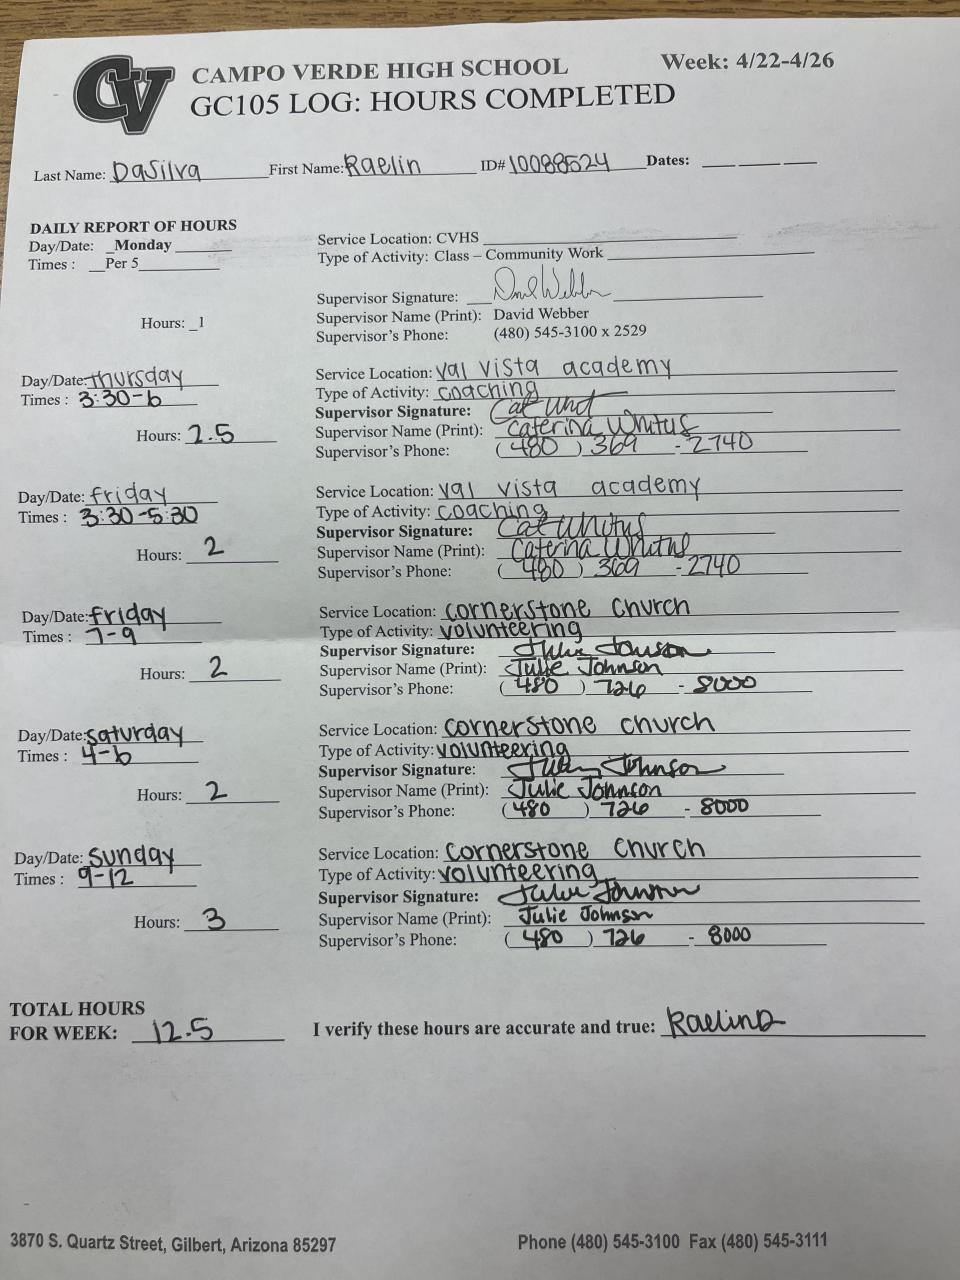 CV
CAMPO VERDE HIGH SCHOOL Week: 4/22-4/26
GC105 LOG: HOURS COMPLETED
Last Name: DaSilva First Name: Raelin ID# 10088524 Dates: ___ ___ ___
DAILY REPORT OF HOURS
Day/Date: _Monday Service Location: CVHS
Times : Per 5 Type of Activity: Class – Community Work
Supervisor Signature: David Webber
Hours: _1 Supervisor Name (Print): David Webber
Supervisor's Phone: (480) 545-3100 x 2529
Day/Date: Thursday Service Location: Val vista academy
Times : 3:30-6 Type of Activity: coaching
Supervisor Signature: Cat
Hours: 2.5 Supervisor Name (Print): Caterina Whitus
Supervisor's Phone: (480) 369 - 2740
Day/Date: friday Service Location: val vista academy
Times : 3:30-5:30 Type of Activity: coaching
Supervisor Signature: Cat Whitus
Hours: 2 Supervisor Name (Print): Caterina Whitus
Supervisor's Phone: (480) 369 - 2740
Day/Date: friday Service Location: cornerstone church
Times : 7-9 Type of Activity: volunteering
Supervisor Signature: Julie Johnson
Hours: 2 Supervisor Name (Print): Julie Johnson
Supervisor's Phone: (480) 726 - 8000
Day/Date: saturday Service Location: cornerstone church
Times : 4-6 Type of Activity: volunteering
Supervisor Signature: Julie Johnson
Hours: 2 Supervisor Name (Print): Julie Johnson
Supervisor's Phone: (480) 726 - 8000
Day/Date: sunday Service Location: cornerstone church
Times : 9-12 Type of Activity: volunteering
Supervisor Signature: Julie Johnson
Hours: 3 Supervisor Name (Print): Julie Johnson
Supervisor's Phone: (480) 726 - 8000
TOTAL HOURS
FOR WEEK: 12.5 I verify these hours are accurate and true: Raelin D
3870 S. Quartz Street, Gilbert, Arizona 85297 Phone (480) 545-3100 Fax (480) 545-3111